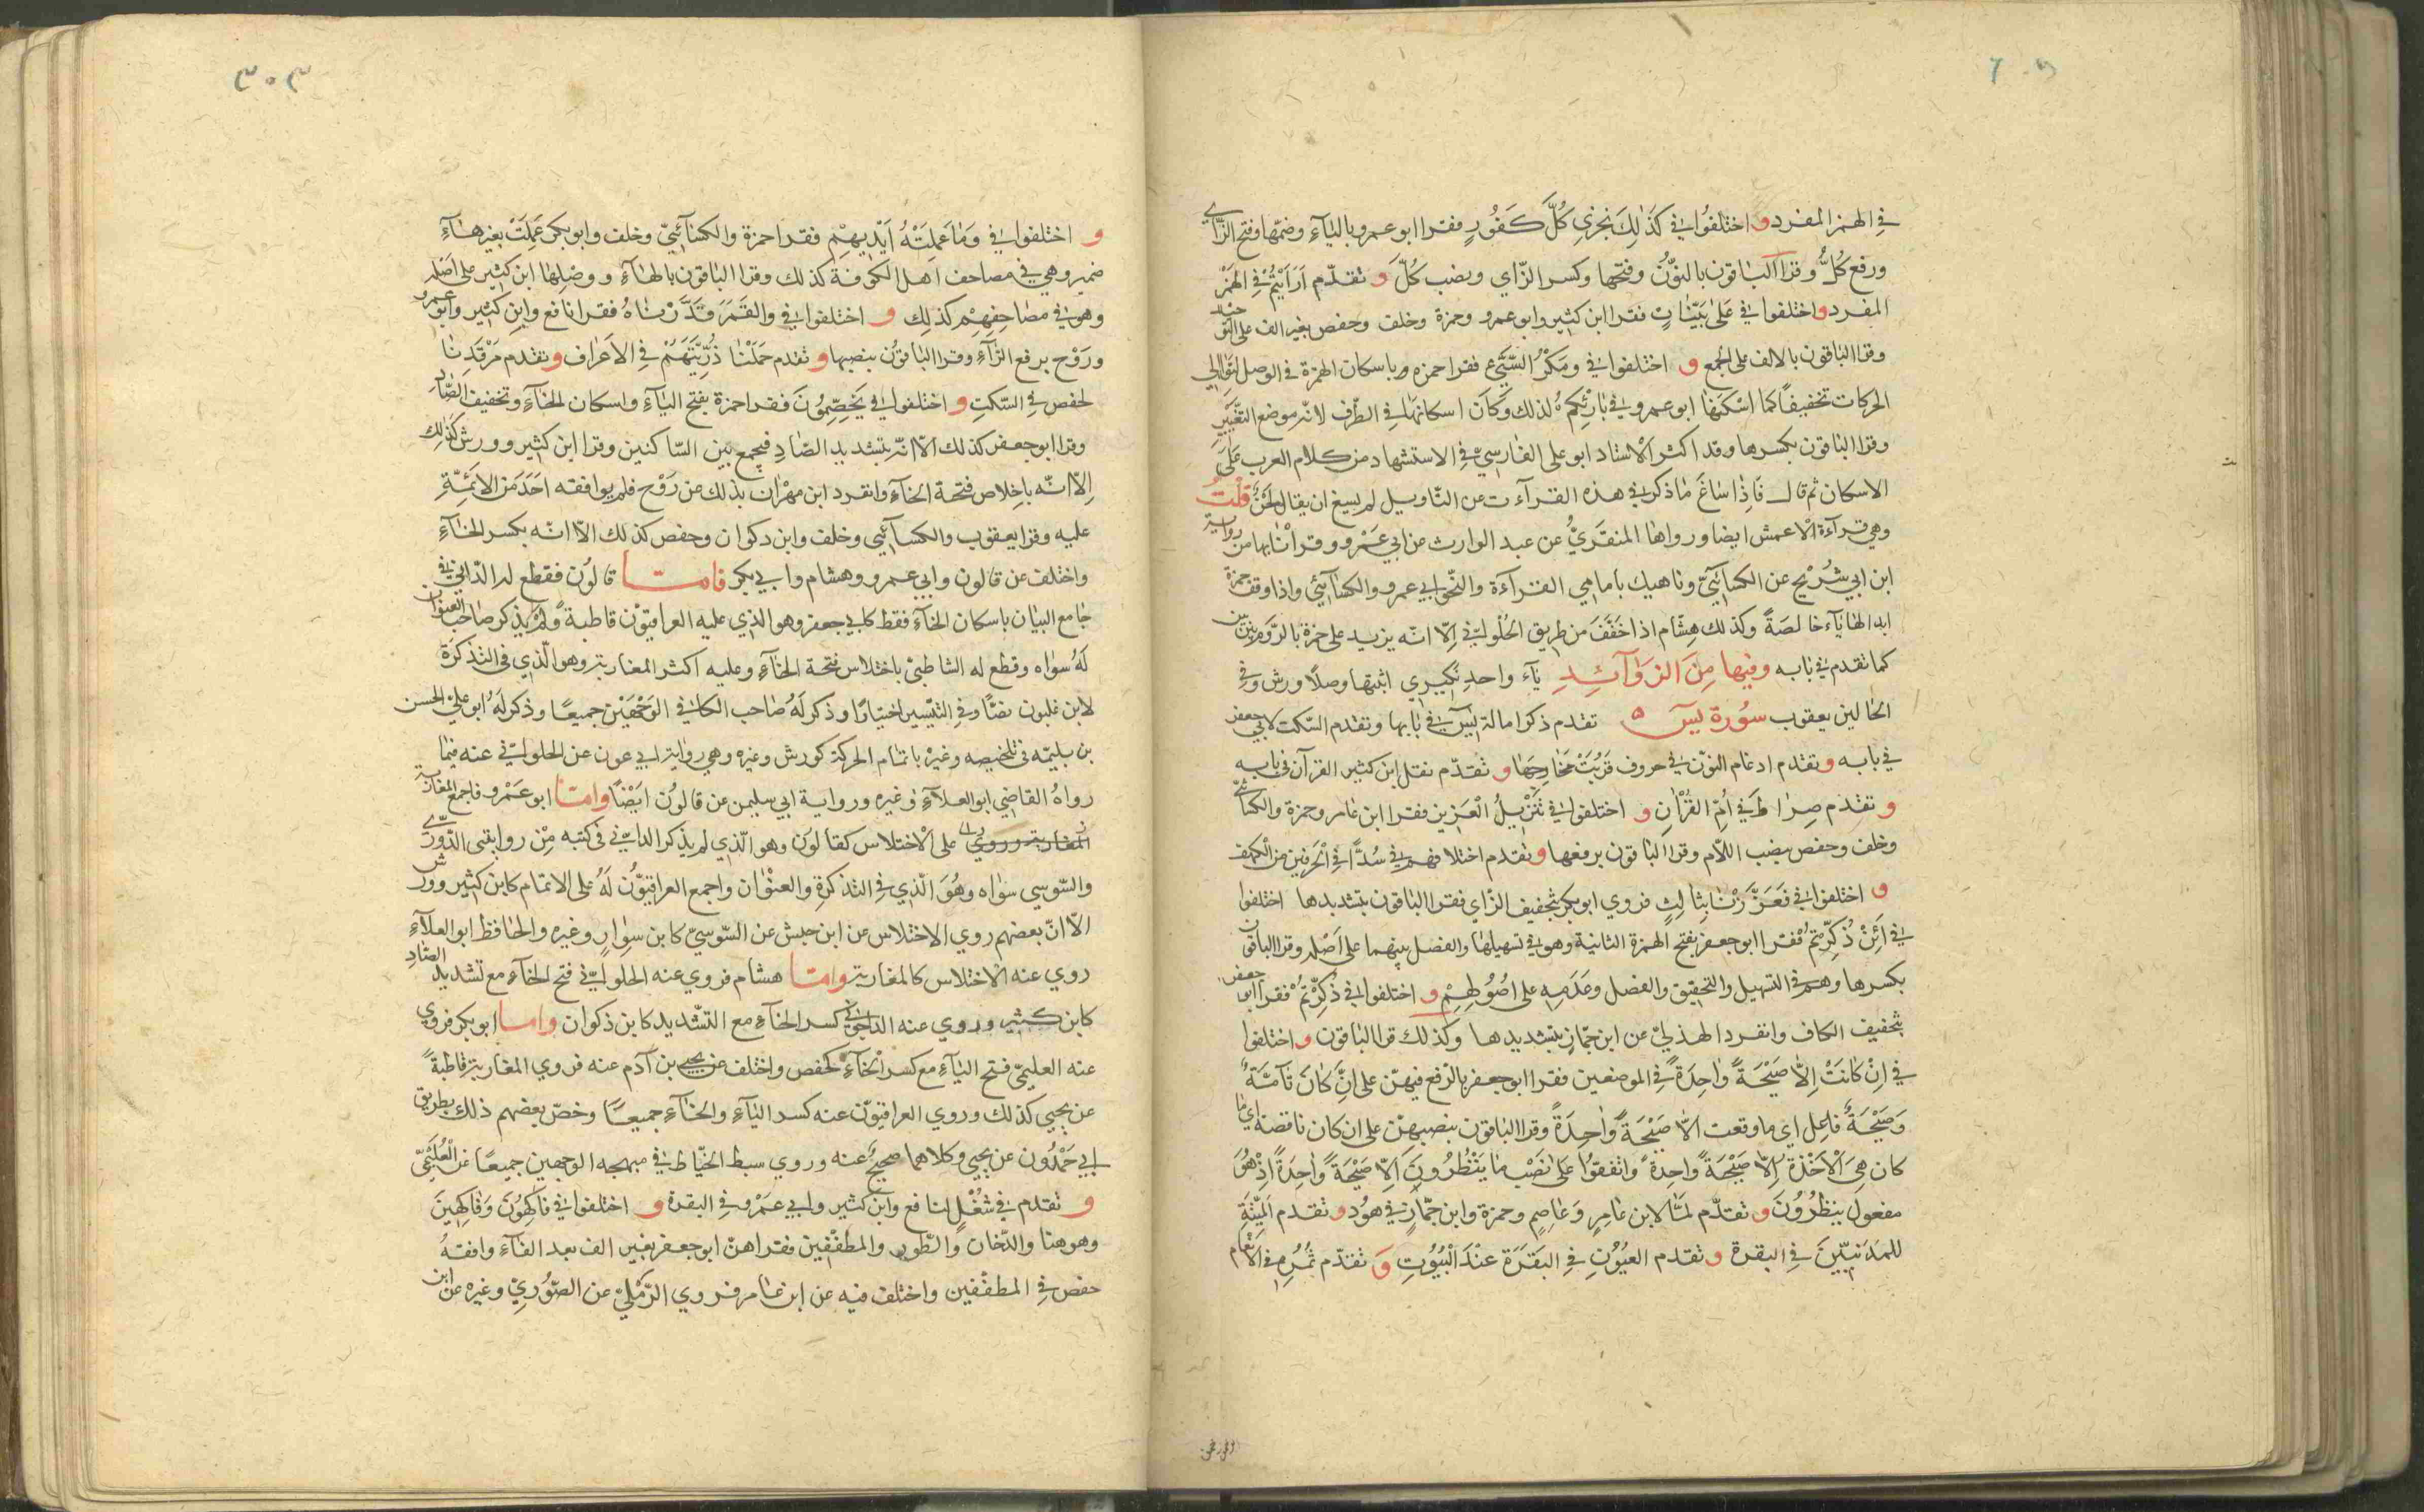 في الهمز المفرد و اختلفوا في كَذٰلِكَ نجزي كُلَّ كَفُورٍ فقرا ابو عمرو بالياء وضمّها وفتح الزّاي
ورفع كُلُّ وقرا الباقون بالنّون وفتحها وكسر الزّاي ونصب كُلَّ و تقدّم أَرَأَيْتُمْ في الهمز
المفرد و اختلفوا في عَلىٰ بَيِّنَاتٍ فقرا ابن كثير وابو عمرو وحمزة وخلف وحفص بغير الف على التوحيد
وقرا الباقون بالالف على الجمع و اختلفوا في ومَكْرُ السَّيِّئِ فقرا حمزه باسكان الهمزة في الوصل لتوالي
الحركات تخفيفًا كما اسكنها ابو عمرو في بَارِئِكُمْ لذلك وكان اسكانها في الطّرف لانّه موضع التّغيير
وقرا الباقون بكسرها وقد اكثر الاستاد ابو علي الفارسيّ في الاستشهاد من كلام العرب عَلَى
الاسكان ثم قال فَاِذا سَاغَ مَا ذكر في هذه القراءت من التّاويل لم يسغ ان يقال لحنٌ قُلْتُ
وهي قراءة الاعمش ايضا ورواها المنقَرِيُّ عن عبد الوارث عن ابي عَمْرو وقرأنا بها من رواية
ابن ابي شُرَيْح عن الكسائيّ وناهيك بامامي القراءة والنّحو ابي عمرو والكسائي واذا وقف حمزة
ابدالها ياء خالصَةً وكذلك هِشَام اذا خَفَّفَ من طريق الحُلوانيّ اِلّا انّه يزيد على حمزة بالرَّوم بين بين
كما تقدم في بابه وفيها مِنَ الزَوَآئِدِ يَآء واحدِ نَكِيري اثبتها وصلًا ورش وفي
الحالين يعقوب سُورة يسٓ ٥ تقدم ذكر امالة يٰسٓ في بابها وتقدم السّكت لابي جعفر
في بابه و تقدم ادغام النّون في حروف قَرُبَتْ مَخَارِجهَا و تقدّم نقل ابن كثير القرآن في بابه
و تقدم صِرَاط في أُمّ القُرْآنِ و اختلفوا في تَنْزِيلُ الْعَزيز فقرا ابن عامر وحمزة والكسائيّ
وخلف وحفص بنصب اللّام وقرا الباقون برفعها و تقدم اختلافهم في سُدًّا في الحرفين من الكهف
و اختلفوا في فَعَزَّزْنَا بِثَالِثٍ فروي ابو بكر بتخفيف الزّاي فقرا الباقون بتشديدها اختلفوا
في أَئِنْ ذُكِّرْتُمْ فقرا ابو جعفر بفتح الهمزة الثانية وهو في تسهيلها والفصل بينهما على اَصْله وقرا الباقون
بكسرها وهم في التسهيل والتحقيق والفصل وعَدَمِهِ على اصُوُلِهِمْ و اختلفوا في ذُكِّرْتُمْ فقرا ابو جعفر
بتخفيف الكاف وانفرد الهذليّ عن ابن جمّاز بتشديدها وكذلك قرا الباقون و اختلفوا
في اِنْ كَانَتْ اِلّا صَيْحَةً وَاحِدَةً في الموضعين فقرا ابو جعفر بالرّفع فيهنّ على انّ كَانَ تَآمَّةٌ
وَصَيْحَةٌ فاعل اي ما وقعت الّا صَيْحَةً وَاحِدَةً وقرا الباقون بنصبهنّ على ان كان ناقصة اي ما
كان هِيَ الْاَخْذَة اِلّا صَيْحَةً واحِدةً واتفقُوا عَلَى نَصْب مَا يَنْظُرُونَ اِلّا صَيْحَةً وَاحِدَةً اِذْ هُوَ
مفعول ينظُرُونَ و تقدّم لمّا لابن عَامِرٍ وَعَاصِمٍ وحمزة وابن جمّازٍ في هوُد و تقدم المَيْتَةِ
للمَدَنِيّينَ في البقرة و تقدم العيُوُنِ في البَقَرَة عَنْدَ الْبُيُوُتِ وَ تقدّم ثُمُرِهِ في الانعام
٣٠٣
و اختلفوا في وَمَا عَمِلَتْهُ اَيْدِيهِمْ فقرا حمزة والكسائيّ وخلف وابو بكر عَمِلَتْ بغير هَاءِ
ضمير وهي في مصاحف اهل الكوفة كذلك وقرا الباقون بالهاء ووصلها ابن كثير على اَصْله
وهو في مصَاحِفِهِم كذلِك و اختلفوا في والقَمَرَ قَدَّرْنَاهُ فقرا نافع وابن كثير وابو عمرو
ورَوْح برفع الرّاءِ وقرا الباقوُن بنصبها و تقدم حَمَلْنَا ذُرِّيَّتَهُمْ في الاَعْرَاف و تقدم مَرْقَدِنَا
لحفص في السّكتِ و اختلفوا في يَخِصِّمِوُنَ فقرا حمزة بفتح الياءِ واسكان الخاءِ وتخفيف الصَّاد
وقرا ابو جعفر كذلك الّا انّه بتشديد الصّادِ فيجمع بين السّاكنين وقرا ابن كثير وورش كذٰلِك
اِلّا انّه باِخلاص فتحة الخاءِ وانفرد ابن مهْرَان بذلك عن رَوْح فلم يوافقه اَحَدَ من الائمّةِ
عليه وقرا يعقوب والكسائيي وخلف وابن ذكوان وحفص كذلك الّا انّه بكسر الخاءِ
واختلف عن قالون وابي عمرو وهشام وابي بكر فامّا قالوُن فقطع له الدّاني في
جامع البيان باسكان الخاءِ فقط كابي جعفر وهو الذي عليه العراقيّون قاطبةً ولَمْ يذكر صَاحب العنوان
لَهُ سوَاه وقطع له الشاطبيّ باختلاس فتحة الخاءِ وعليه اكثر المغاربة وهو الّذي في التذكرَة
لابن غلبون نصًّا وفي التيسير اختيارًا وذكر لَهُ صَاحب الكافي الوَجْهَيْن جميعًا وذكر لَهُ ابو عليّ الحسن
بن بليمه في تلخيصه وغيرْ باتمام الحركة كورش وغيره وهي رواية ابي عون عن الحلوانيّ عنه فيمَا
رواهُ القاضي ابو العلاءِ وغيره ورواية ابي سليمن عن قالوُن ايَضْا وامّا ابو عَمْرو فاجمع المغاربة
المغاربة وروي على الاختلاس كقالوُن وهو الّذي لم يذكر الدانيّ في كتبه مِن روايتى الدّوريّ
والسّوسي سوَاه وهُوَ الّذي في التذكرة والعنوْان واجمع العراقيوُّن لَهُ على الاتمام كابن كثير وورش
الّا انّ بعضهم روي الاختلاس عن ابن حبش عن السّوسيّ كابن سِوَارٍ وغيره والحافظ ابو العلاءِ
روي عنه الاختلاس كالمغاربة وامّا هشام فروي عنه الحلوانيّ فتح الخاءِ مع تشديد الصّادِ
كابن كثير وروي عنه الداجوني كسر الخاءِ مع التشديد كابن ذكوان وامّا ابو بكر فروي
عنه العليميّ فتح الياءِ مع كسر الخاءِ كحفص واختلف عن يحيي بن آدم عنه فروي المغاربة قاطبةً
عن يحيي كذلك وروي العراقيوّن عنه كسر الياءِ والخاءِ جميعًا وخصّ بعضهم ذلك بطريق
ابي حَمْدُون عن يحيي وكلاهما صحيحٌ عنه وروي سبط الخيّاط في مبهجه الوجهين جميعًا عن العُلَيْمِيّ
و تقدم في شُغْلٍ لنافع وابن كثير وابي عَمْرو في البقرة و اختلفوا في فَاكِهُوُنَ وَفاكِهينَ
وهو هنا والدّخان وَالطّور والمطفّفين فقراهنّ ابو جعفر بغير الف بعد الفاءِ وافقهُ
حفص في المطفّفين واختلف فيه عن ابن عَامر فروي الرّمْليّ عن الصّوُريّ وغيره عن ابن